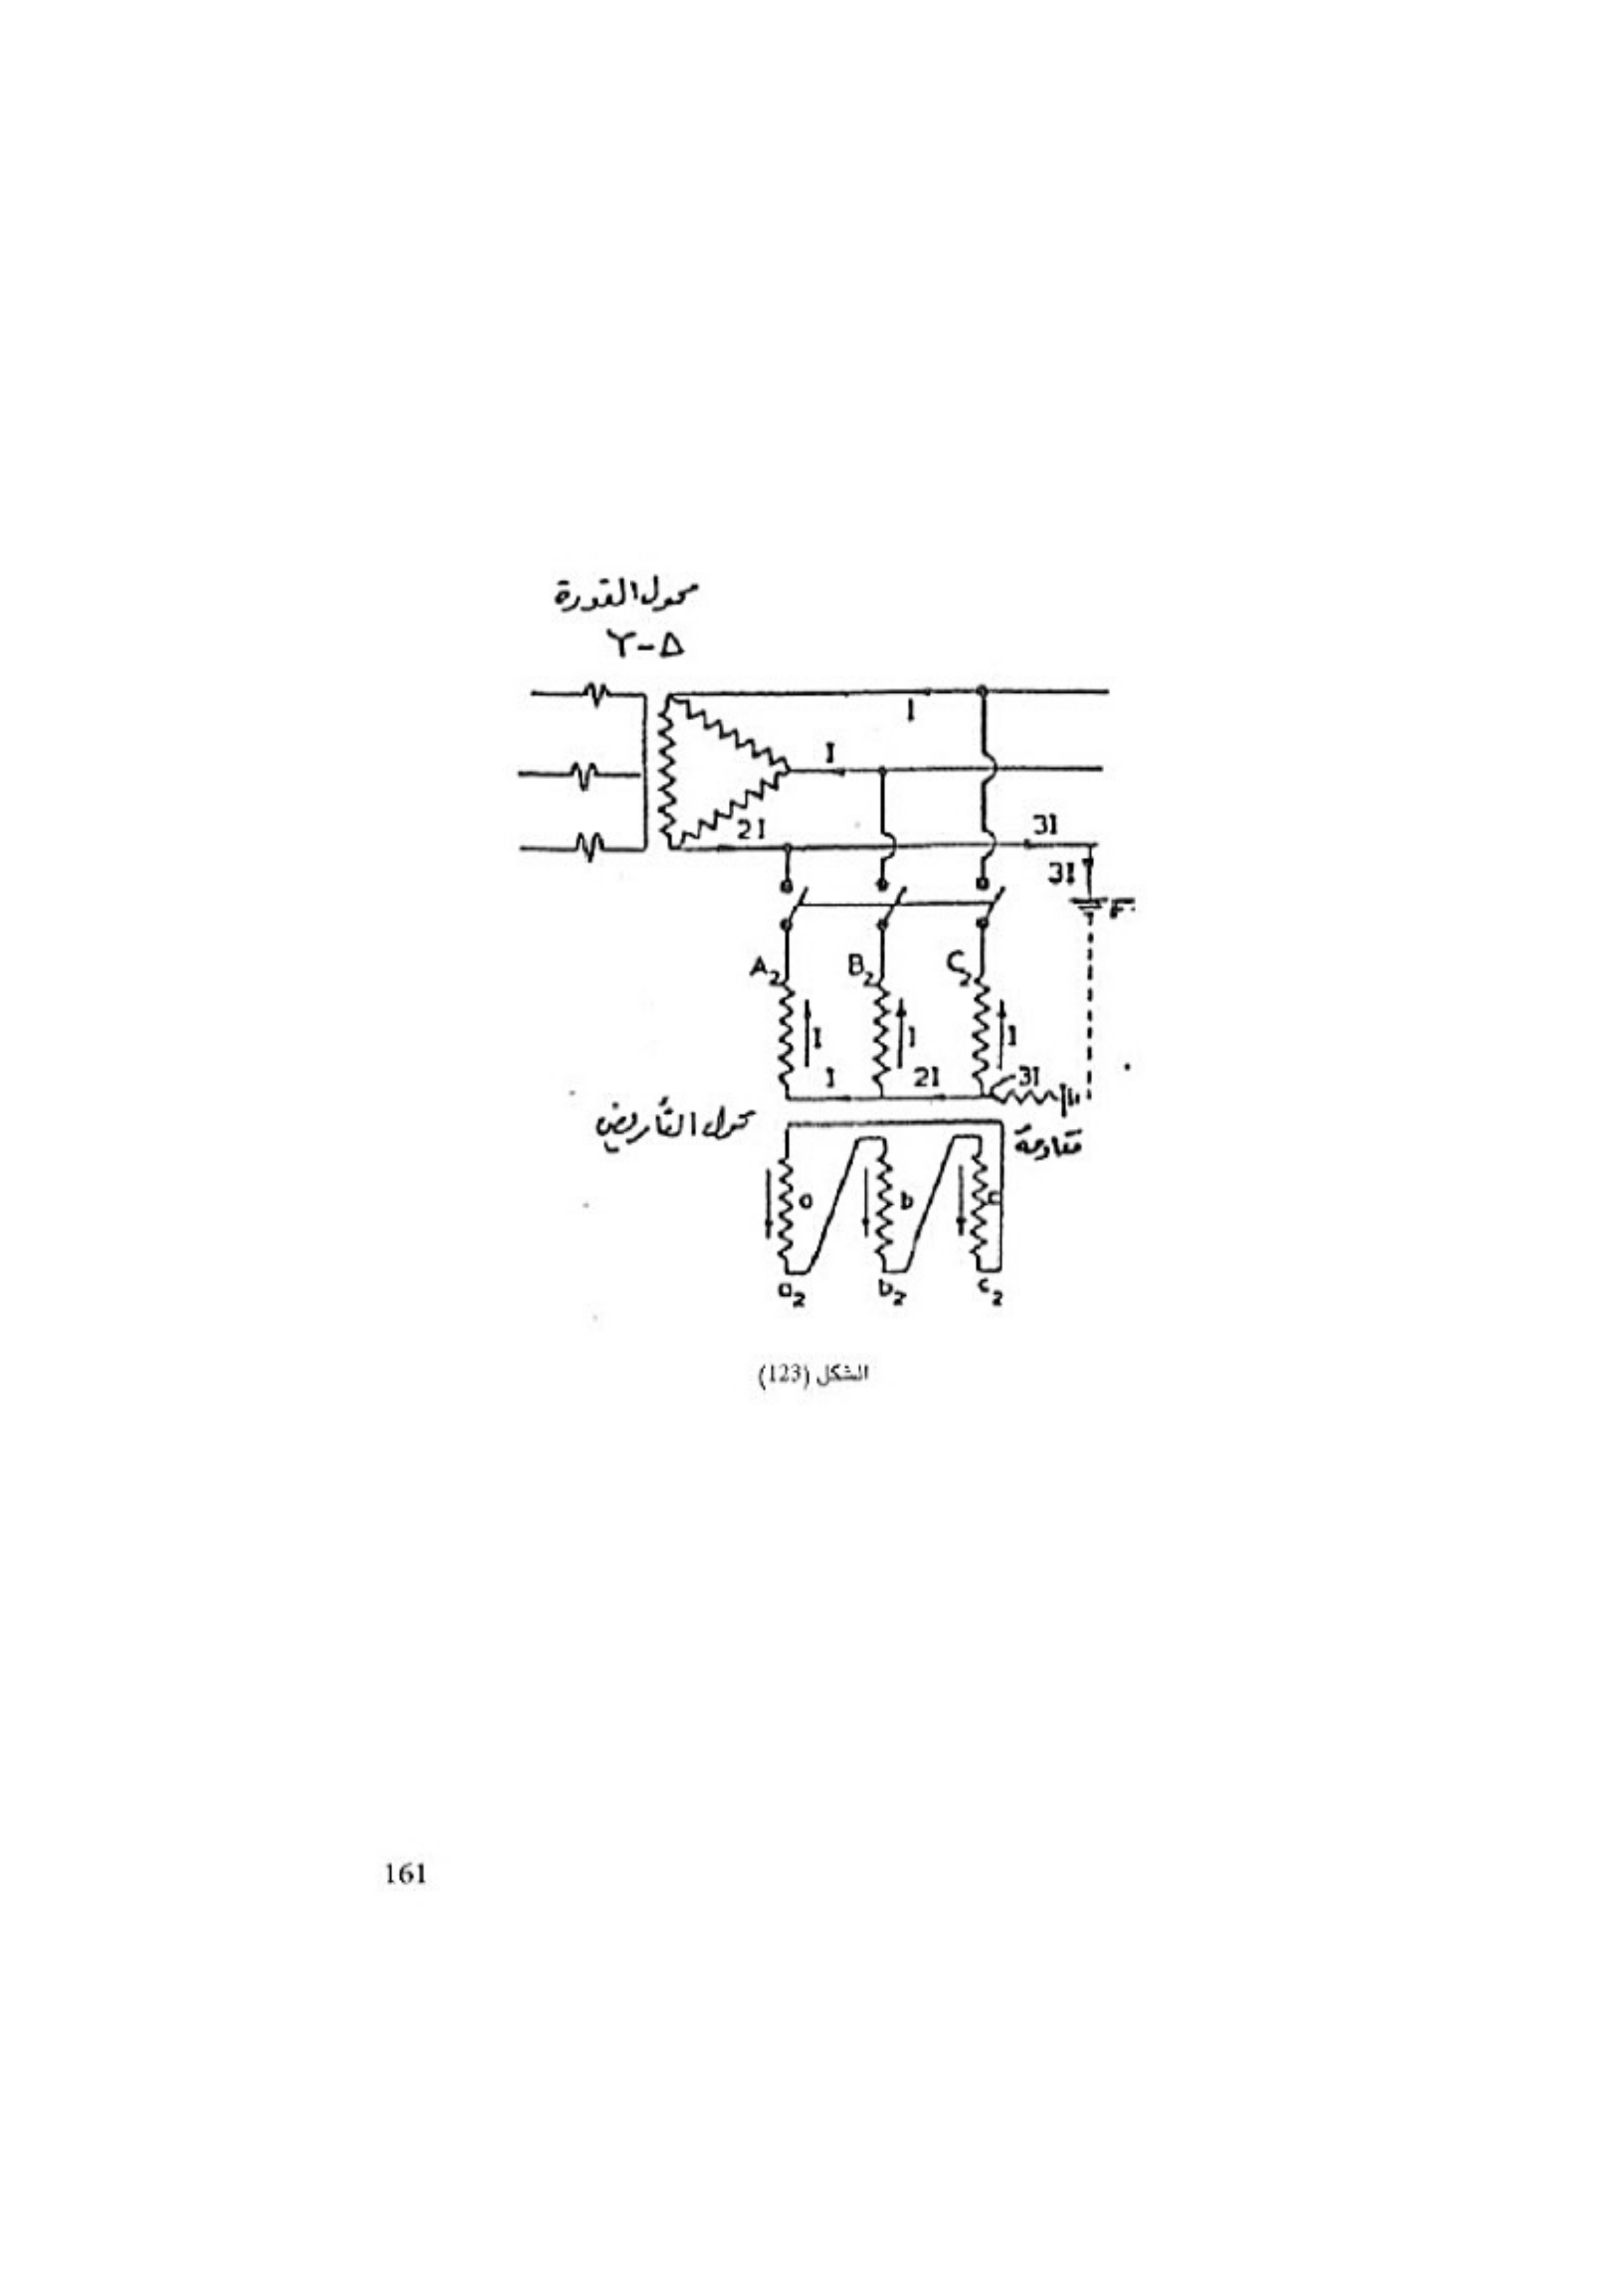 محول القدرة
Y-Δ
I
I
2I
3I
3I
F
A2 B2 C2
I I I
I 2I 3I
محول التأريض
مقاومة
a b c
a2 b2 c2
الشكل (123)
161